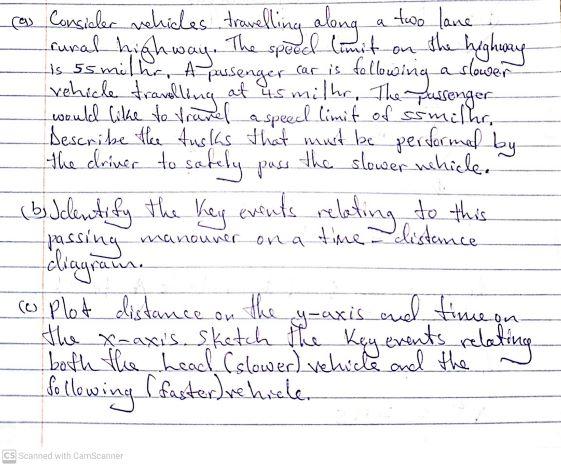 (a) Consider vehicles travelling along a two lane
rural highway. The speed limit on the highway
is 55 mi/hr. A passenger car is following a slower
vehicle travelling at 45 mi/hr. The passenger
would like to travel a speed limit of 55 mi/hr.
Describe the tasks that must be performed by
the driver to safely pass the slower vehicle.
(b) Identify the key events relating to this
passing manouver on a time - distance
diagram.
(c) Plot distance on the y-axis and time on
the x-axis. Sketch the key events relating
both the lead (slower) vehicle and the
following (faster) vehicle.
CS Scanned with CamScanner